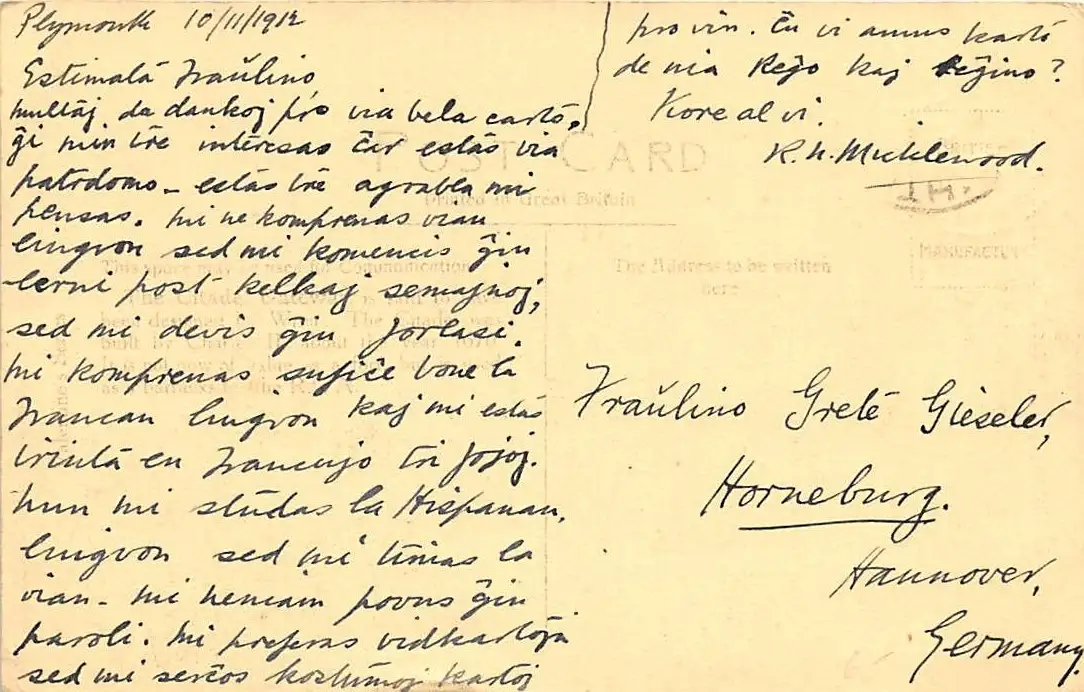 Plymouth 10/11/1912
Estimata Fraŭlino
multaj da dankoj pro via bela carto,
ĝi min tre interesas ĉar estas via
patrdomo – estas tre agrabla mi
pensas. mi ne komprenas vian
lingvon sed mi komencis ĝin
lerni post kelkaj semajnoj,
sed mi devis ĝin forlasi.
mi komprenas sufiĉe bone la
Francan lingvon kaj mi estas
irinta en Francujo tri fojoj.
nun mi studas la Hispanan,
lingvon sed mi timas la
vian – mi neniam povus ĝin
paroli. mi preferas vidkartojn
sed mi serĉos kostumoj kartoj
pro vin. Ĉu vi amus karto
de nia Reĝo kaj Reĝino?
Kore al vi.
R. H. Micklewood.
POST CARD
Printed in Great Britain
This space may be used for Communication
The Address to be written
here
MANUFACTU
Fraŭlino Grete Gieseler,
Horneburg.
Hannover,
Germany.